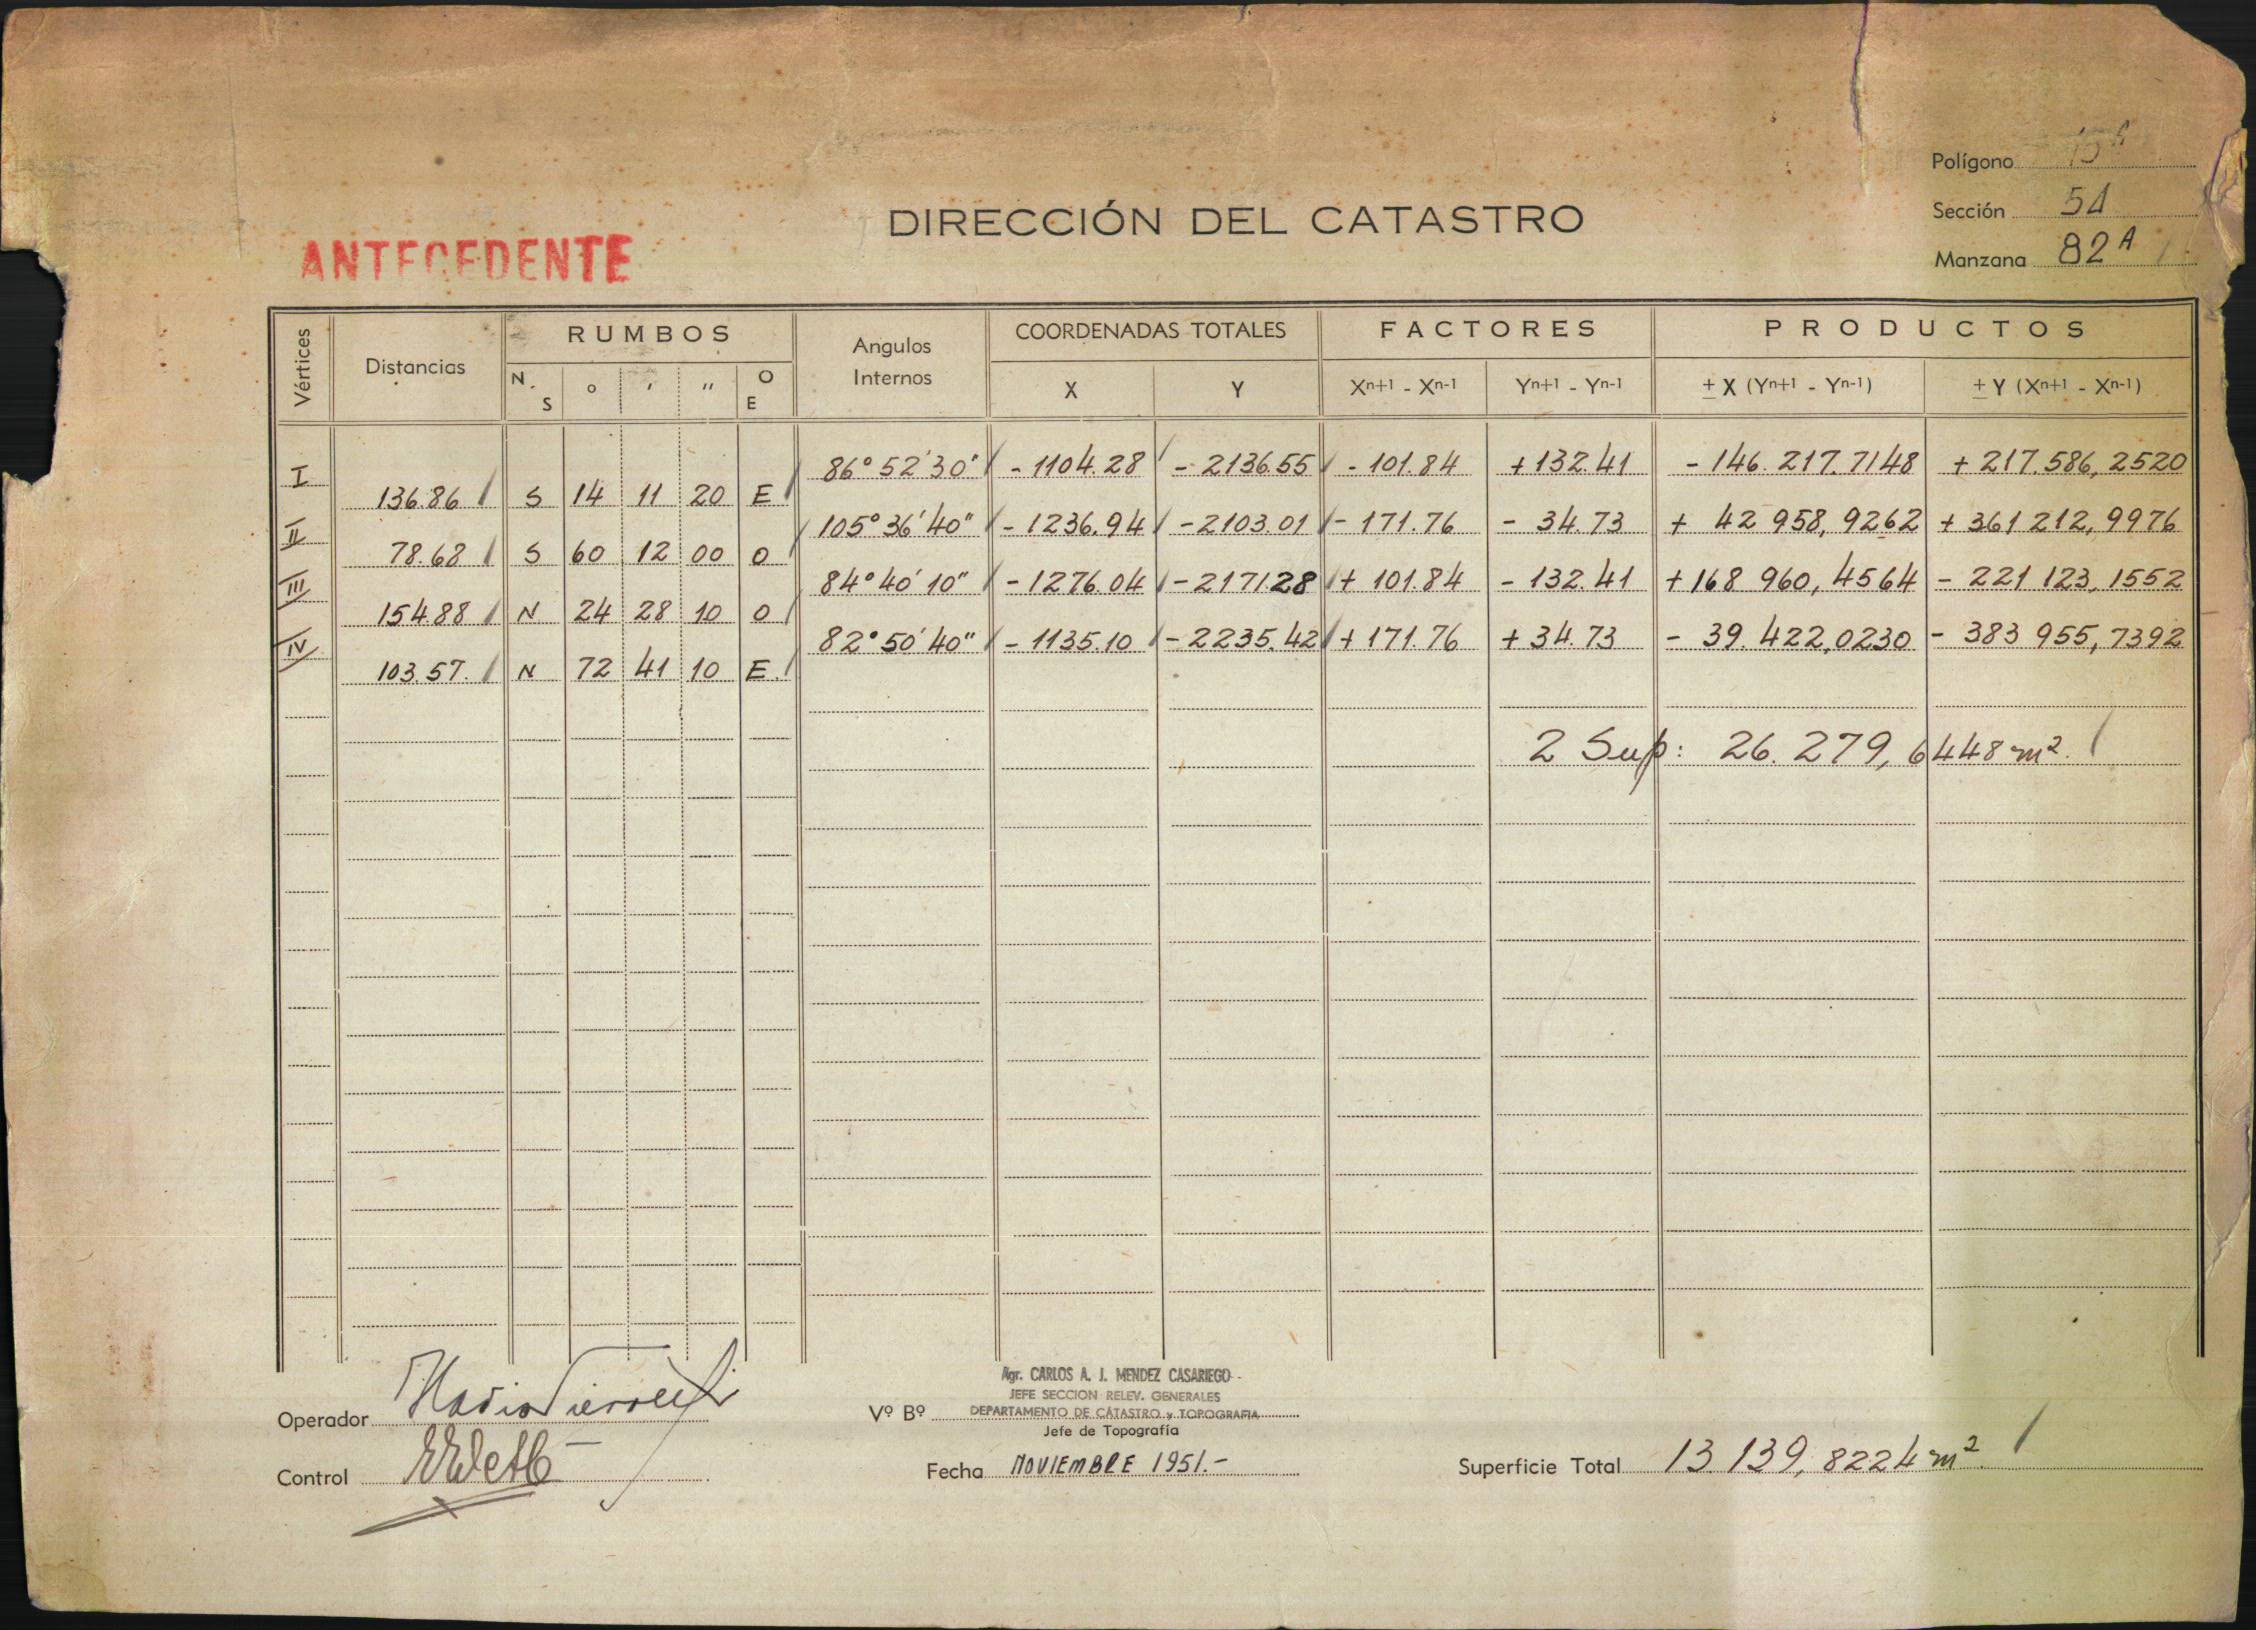 Polígono
DIRECCIÓN DEL CATASTRO
Sección 51
ANTECEDENTE
Manzana 82A
Vértices Distancias RUMBOS Angulos Internos COORDENADAS TOTALES FACTORES PRODUCTOS
N. S o ' '' O E X Y Xn+1 - Xn-1 Yn+1 - Yn-1 ± X (Yn+1 - Yn-1) ± Y (Xn+1 - Xn-1)
I 86° 52' 30" - 1104.28 - 2136.55 - 101.84 + 132.41 - 146.217.7148 + 217.586,2520
136.86 S 14 11 20 E
II 105° 36' 40" - 1236.94 - 2103.01 - 171.76 - 34.73 + 42 958,9262 + 361 212,9976
78.68 S 60 12 00 O
III 84° 40' 10" - 1276.04 - 2171.28 + 101.84 - 132.41 + 168 960,4564 - 221 123,1552
154.88 N 24 28 10 O
IV 82° 50' 40" - 1135.10 - 2235.42 + 171.76 + 34.73 - 39.422,0230 - 383 955,7392
103.57. N 72 41 10 E.
2 Sup: 26.279,6448 m2.
Agr. CARLOS A. J. MENDEZ CASARIEGO
JEFE SECCION RELEV. GENERALES
Operador Vº Bº DEPARTAMENTO DE CATASTRO y TOPOGRAFIA
Jefe de Topografía
Control Fecha NOVIEMBRE 1951.- Superficie Total 13.139,8224 m2.